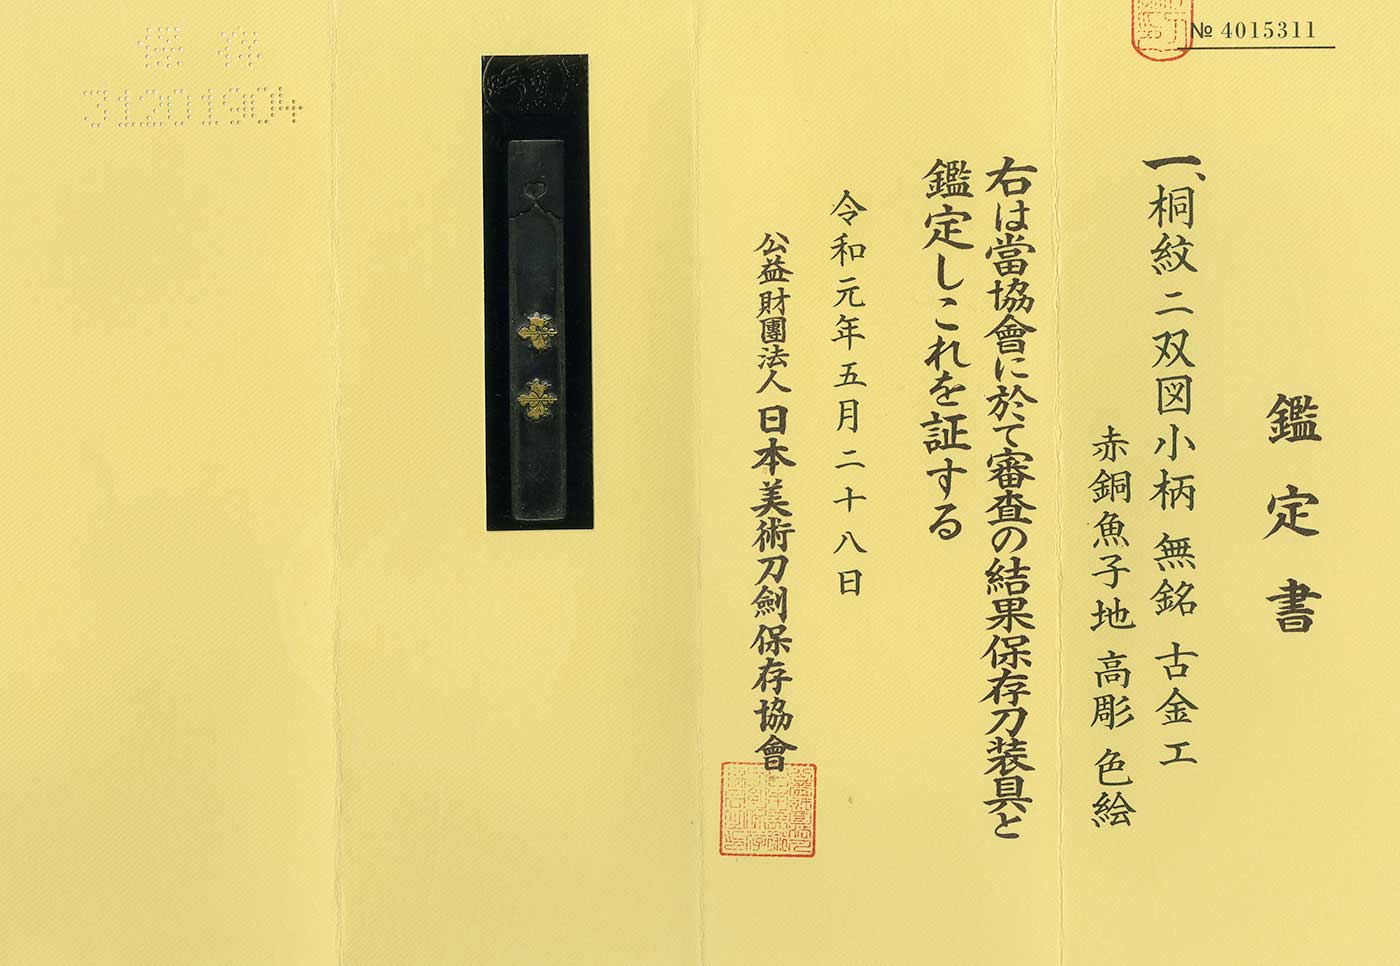 № 4015311
鑑定書
一、桐紋二双図小柄 無銘 古金工
赤銅魚子地 高彫 色絵
右は當協會に於て審査の結果保存刀装具と
鑑定しこれを証する
令和元年五月二十八日
公益財團法人 日本美術刀劍保存協會
保存
31201904